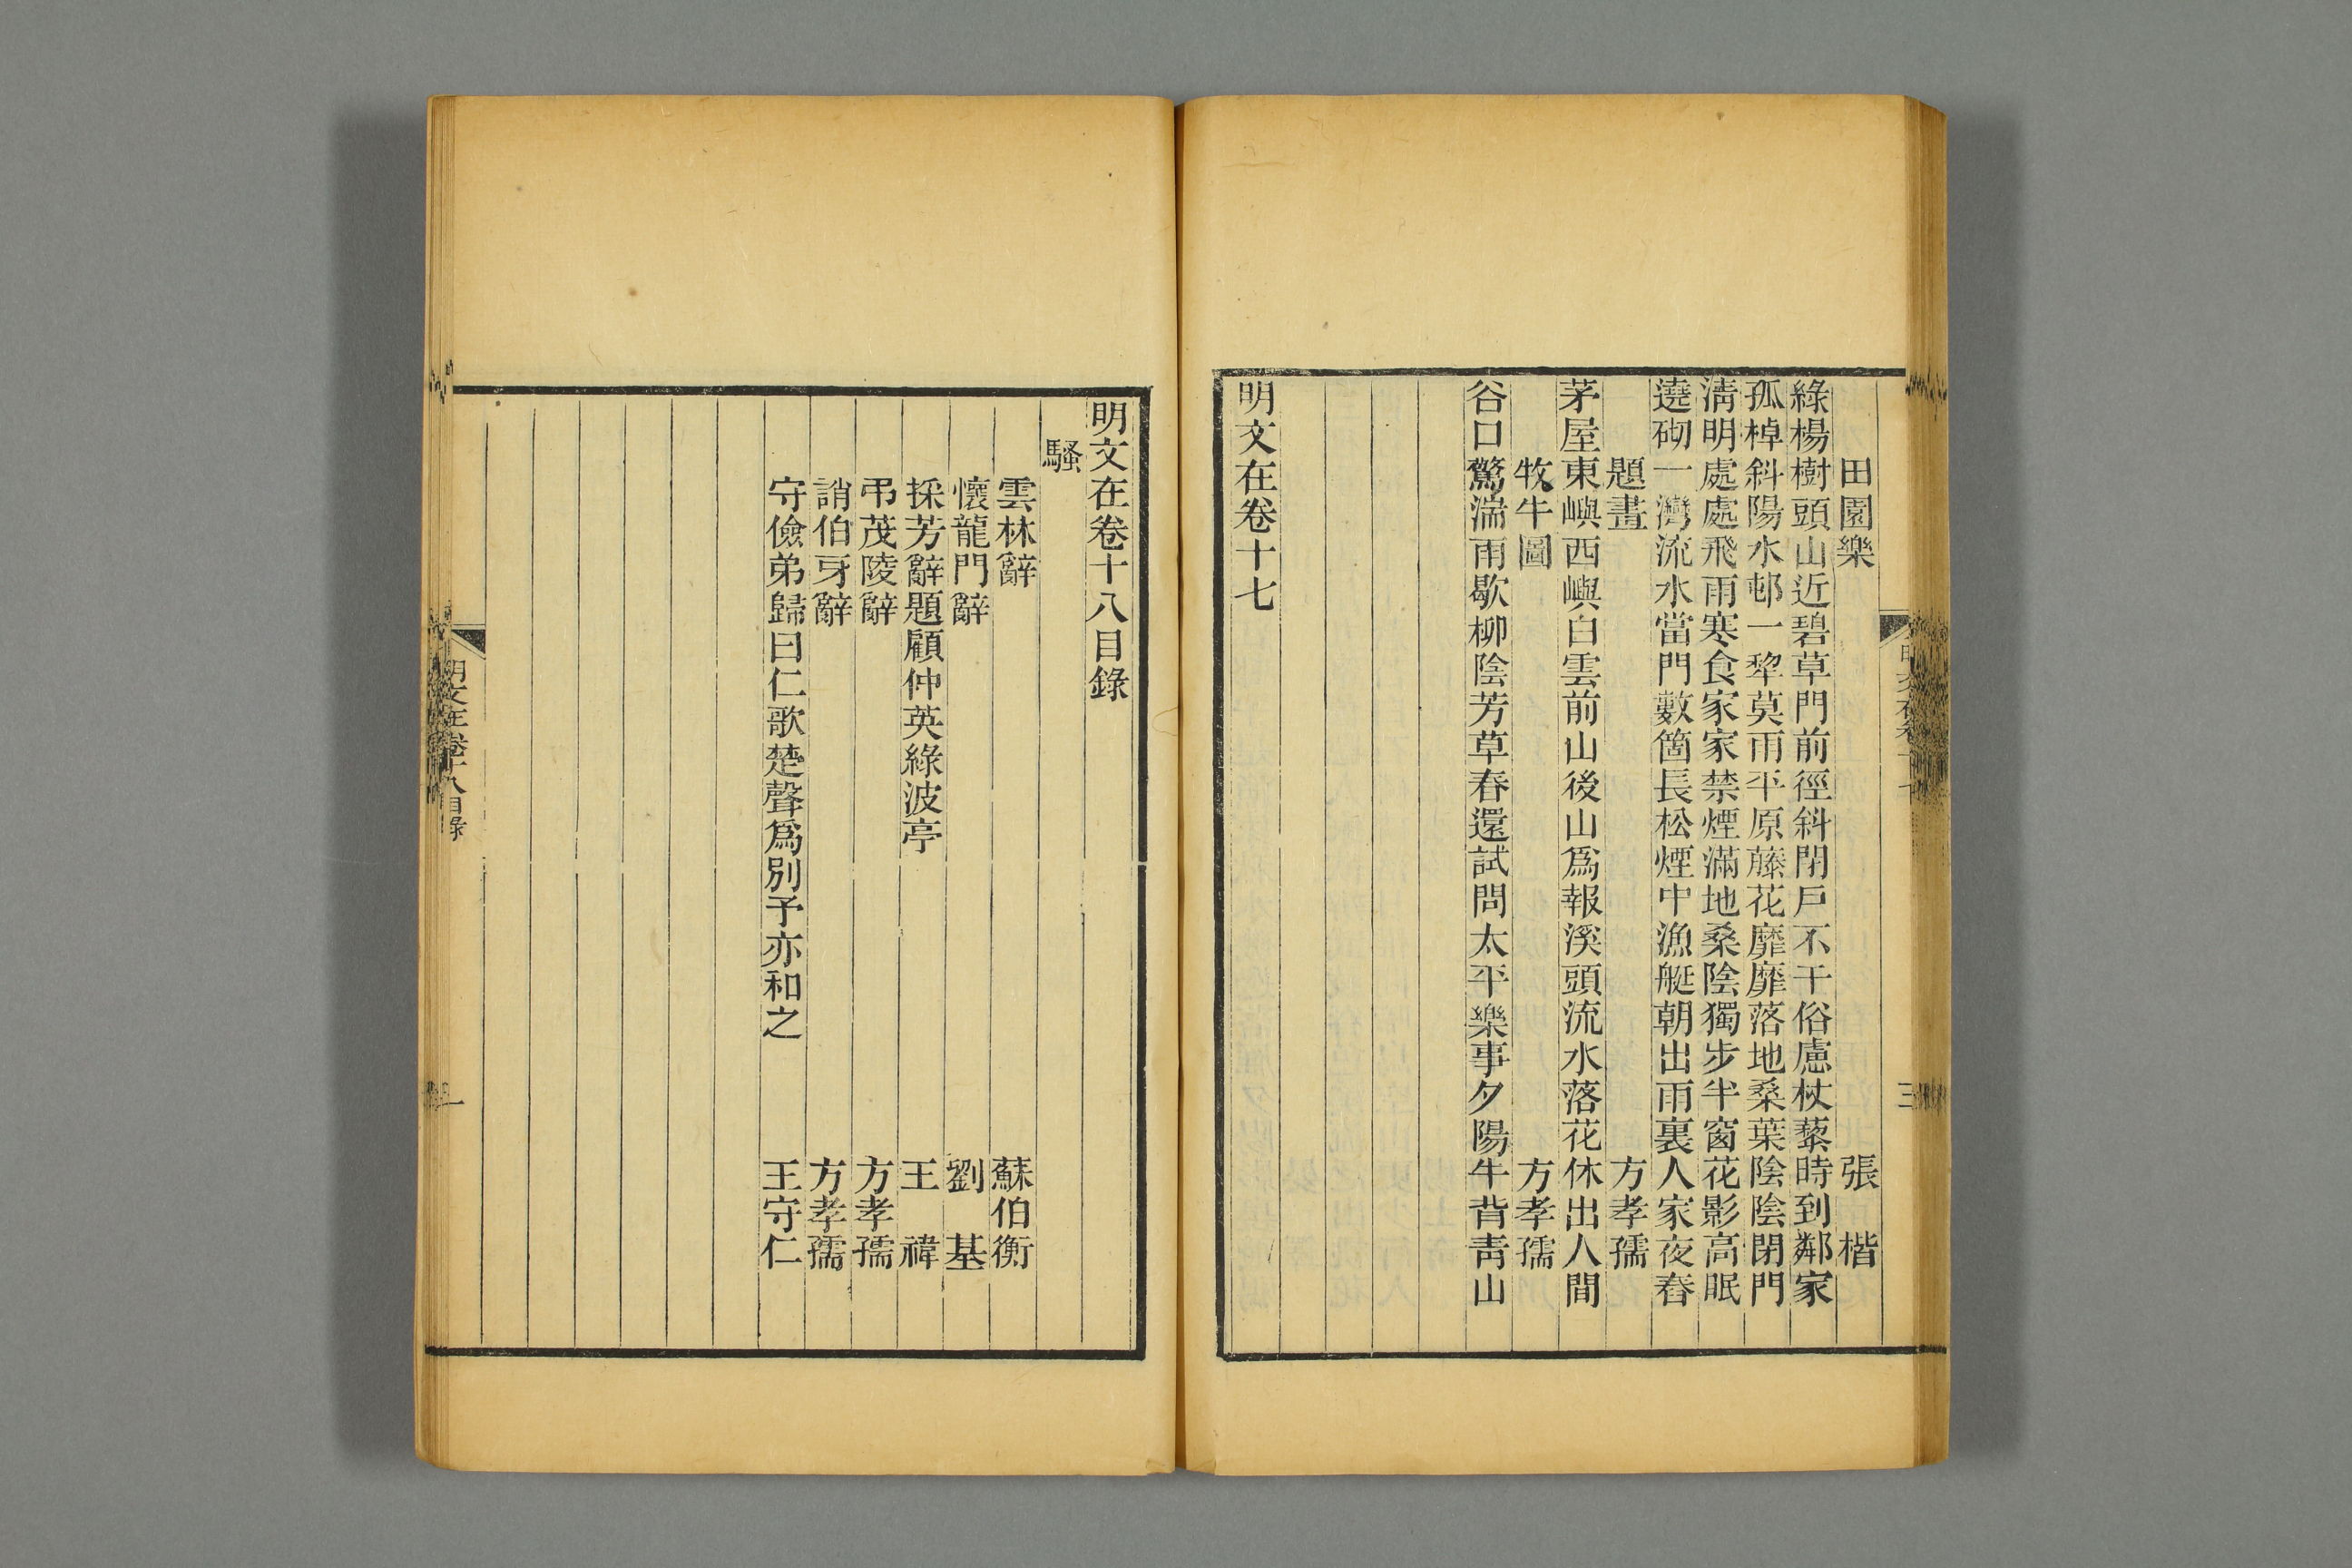 田園樂 張楷
綠楊樹頭山近碧草門前徑斜閉戶不干俗慮杖藜時到鄰家
孤棹斜陽水邨一犂莫雨平原藤花靡靡落地桑葉陰陰閉門
淸明處處飛雨寒食家家禁煙滿地桑陰獨步半窗花影高眠
遶砌一灣流水當門數箇長松煙中漁艇朝出雨裏人家夜舂
題畫 方孝孺
茅屋東嶼西嶼白雲前山後山爲報溪頭流水落花休出人間
牧牛圖 方孝孺
谷口驚湍雨歇柳陰芳草春還試問太平樂事夕陽牛背靑山
明文在卷十七
明文在卷十八目錄
騷
雲林辭 蘇伯衡
懷龍門辭 劉基
採芳辭題顧仲英綠波亭 王禕
弔茂陵辭 方孝孺
誚伯牙辭 方孝孺
守儉弟歸曰仁歌楚聲爲別予亦和之 王守仁
明文在卷十八目錄